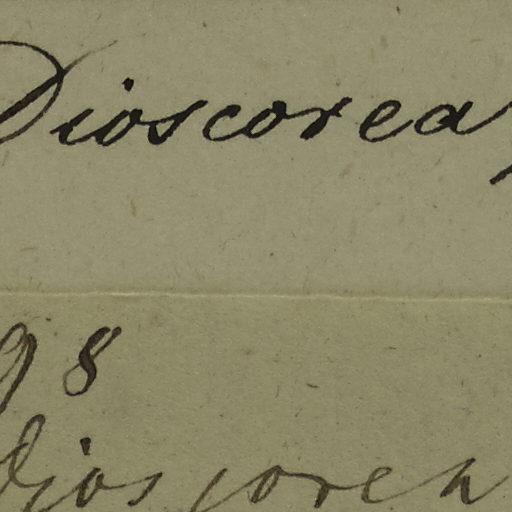 Dioscorea
98
Dioscorea